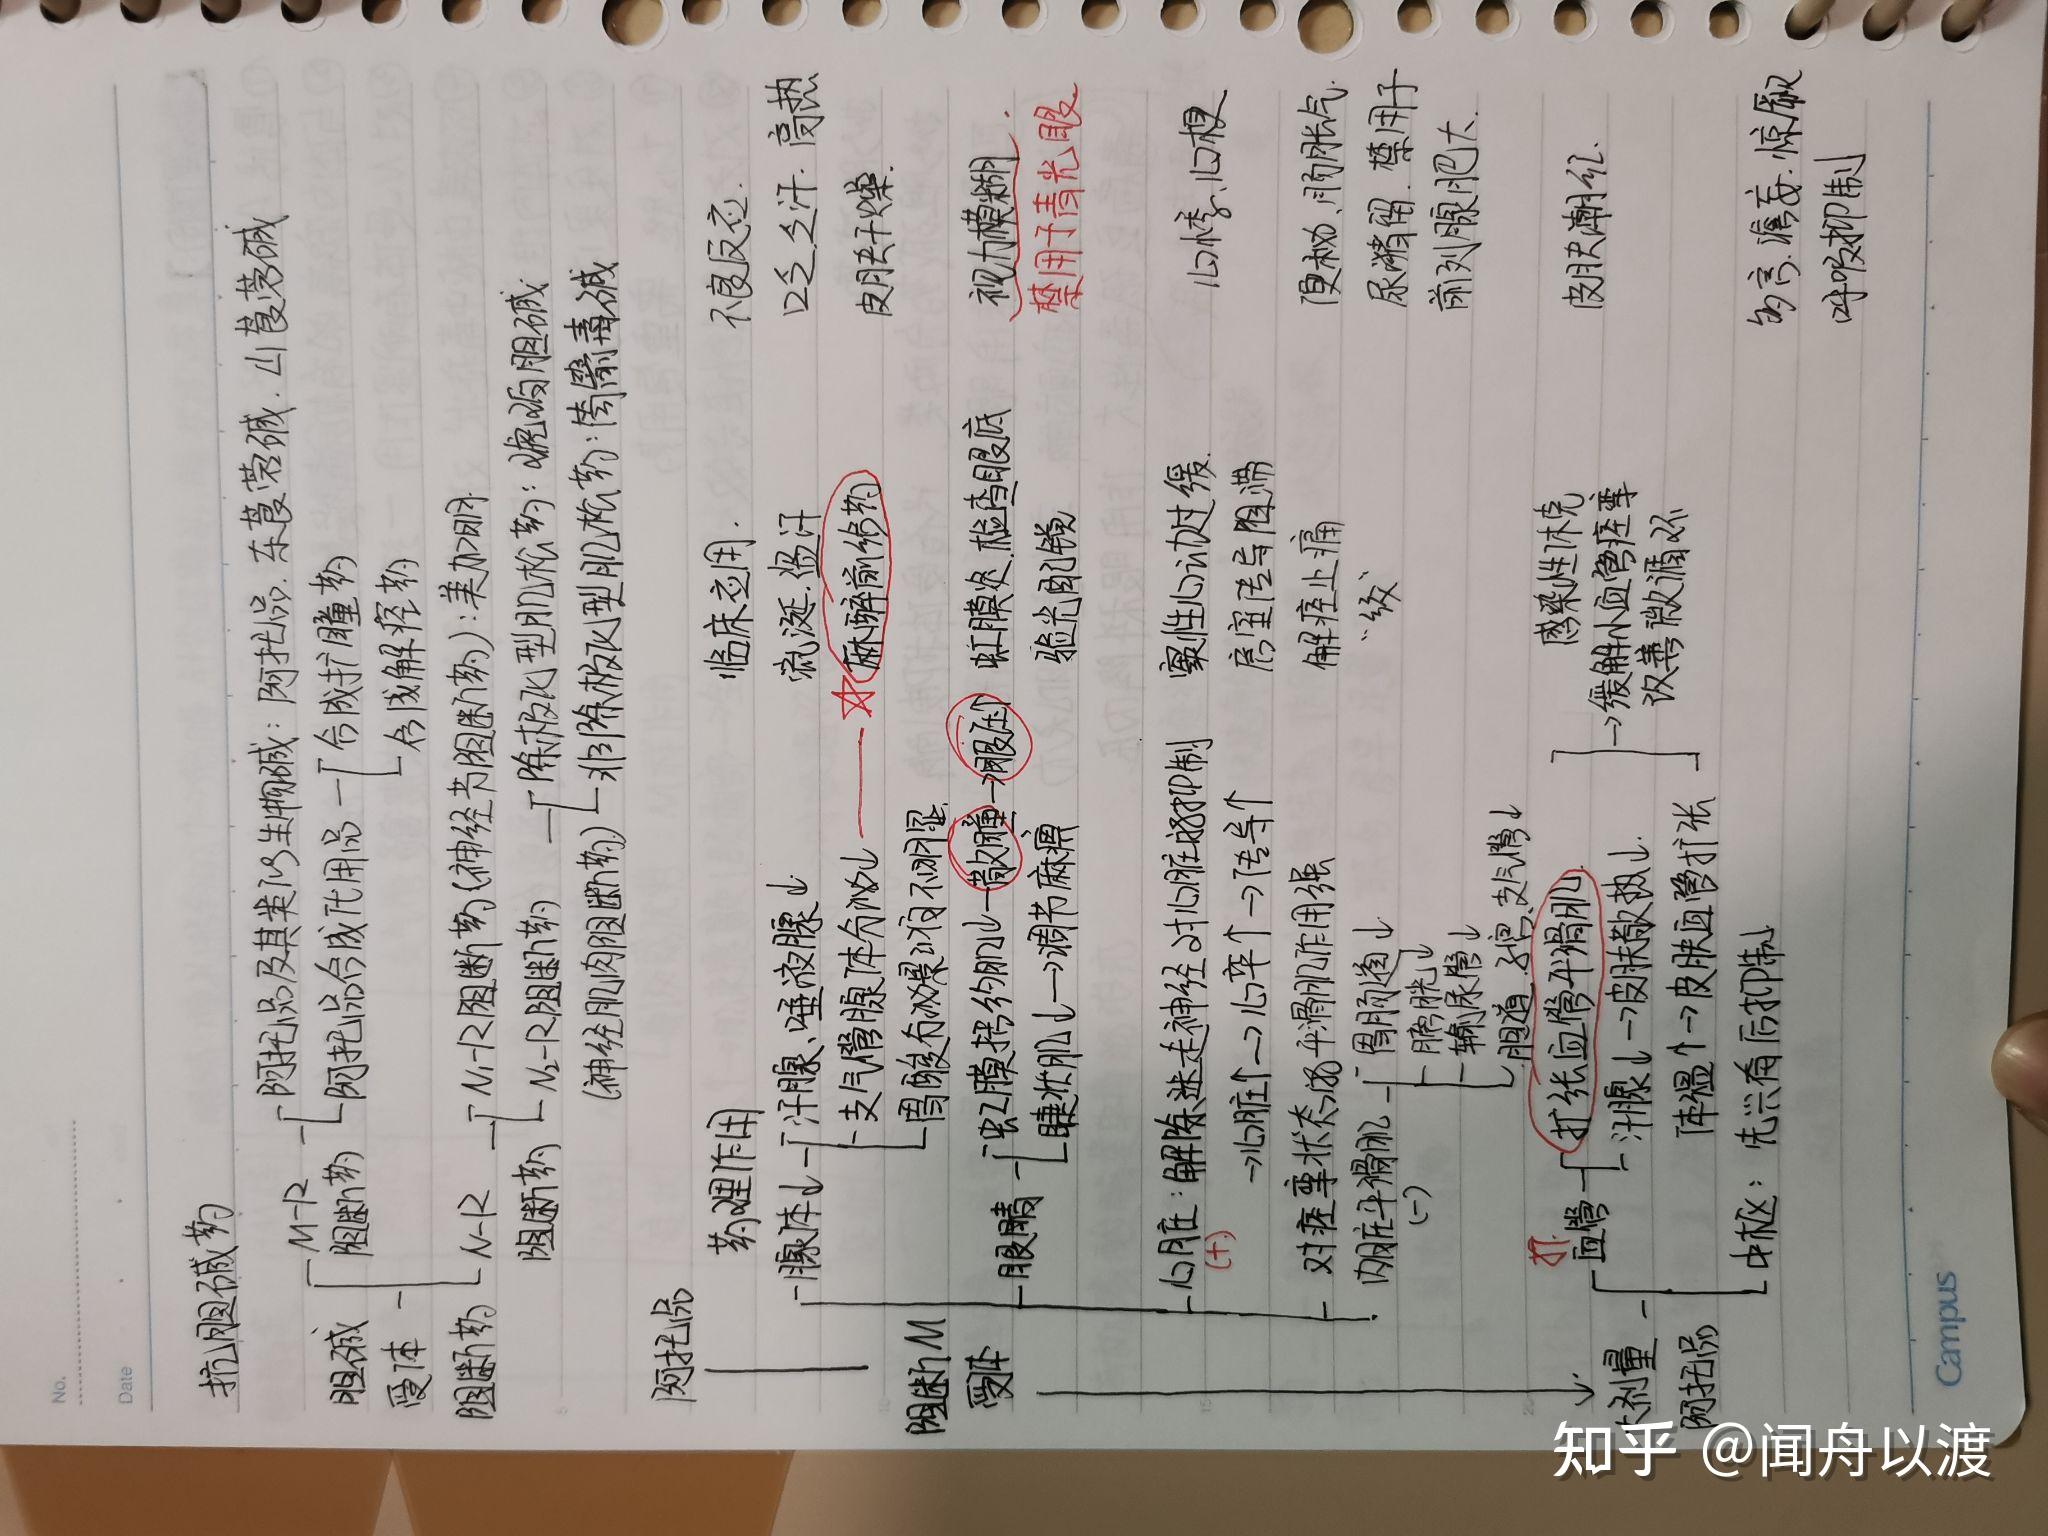 No.
Date
抗胆碱药
胆碱受体阻断药
M-R阻断药
阿托品及其类似生物碱：阿托品、东莨菪碱、山莨菪碱
阿托品合成代用品
合成扩瞳药
合成解痉药
N-R阻断药
N₁-R阻断药(神经节阻断药)：美加明
N₂-R阻断药
(神经肌肉阻断药)
除极化型肌松药：琥珀胆碱
非除极化型肌松药：筒箭毒碱
阿托品
药理作用 临床应用 不良反应
阻断M受体
腺体↓
汗腺、唾液腺↓ 流涎、盗汗 口乏、乏汗、高热
支气管腺体分泌↓ ☆麻醉前给药 皮肤干燥
胃酸分泌影响不明显
眼睛
虹膜括约肌↓ 散瞳→眼压 虹膜炎、检查眼底 视力模糊
睫状肌↓→调节麻痹 验光配镜 禁用于青光眼
心脏：解除迷走神经对心脏抑制 窦性心动过缓 心悸、心梗
(+)
→心脏↑→心率↑→传导↑ 房室传导阻滞
对痉挛状态的平滑肌作用强 解痉止痛 便秘、肠胀气
内脏平滑肌 胃肠道↓ "绞" 尿潴留、禁用于
(-)
膀胱↓ 前列腺肥大
输尿管↓
胆道、子宫、支气管↓
大剂量阿托品
扩
血管
扩张血管平滑肌 感染性休克 皮肤潮红
汗腺↓→皮肤散热↓ →缓解小血管痉挛
体温↑→皮肤血管扩张 改善微循环
中枢：先兴奋后抑制 多言、谵妄、惊厥
呼吸抑制
Campus
知乎 @闻舟以渡